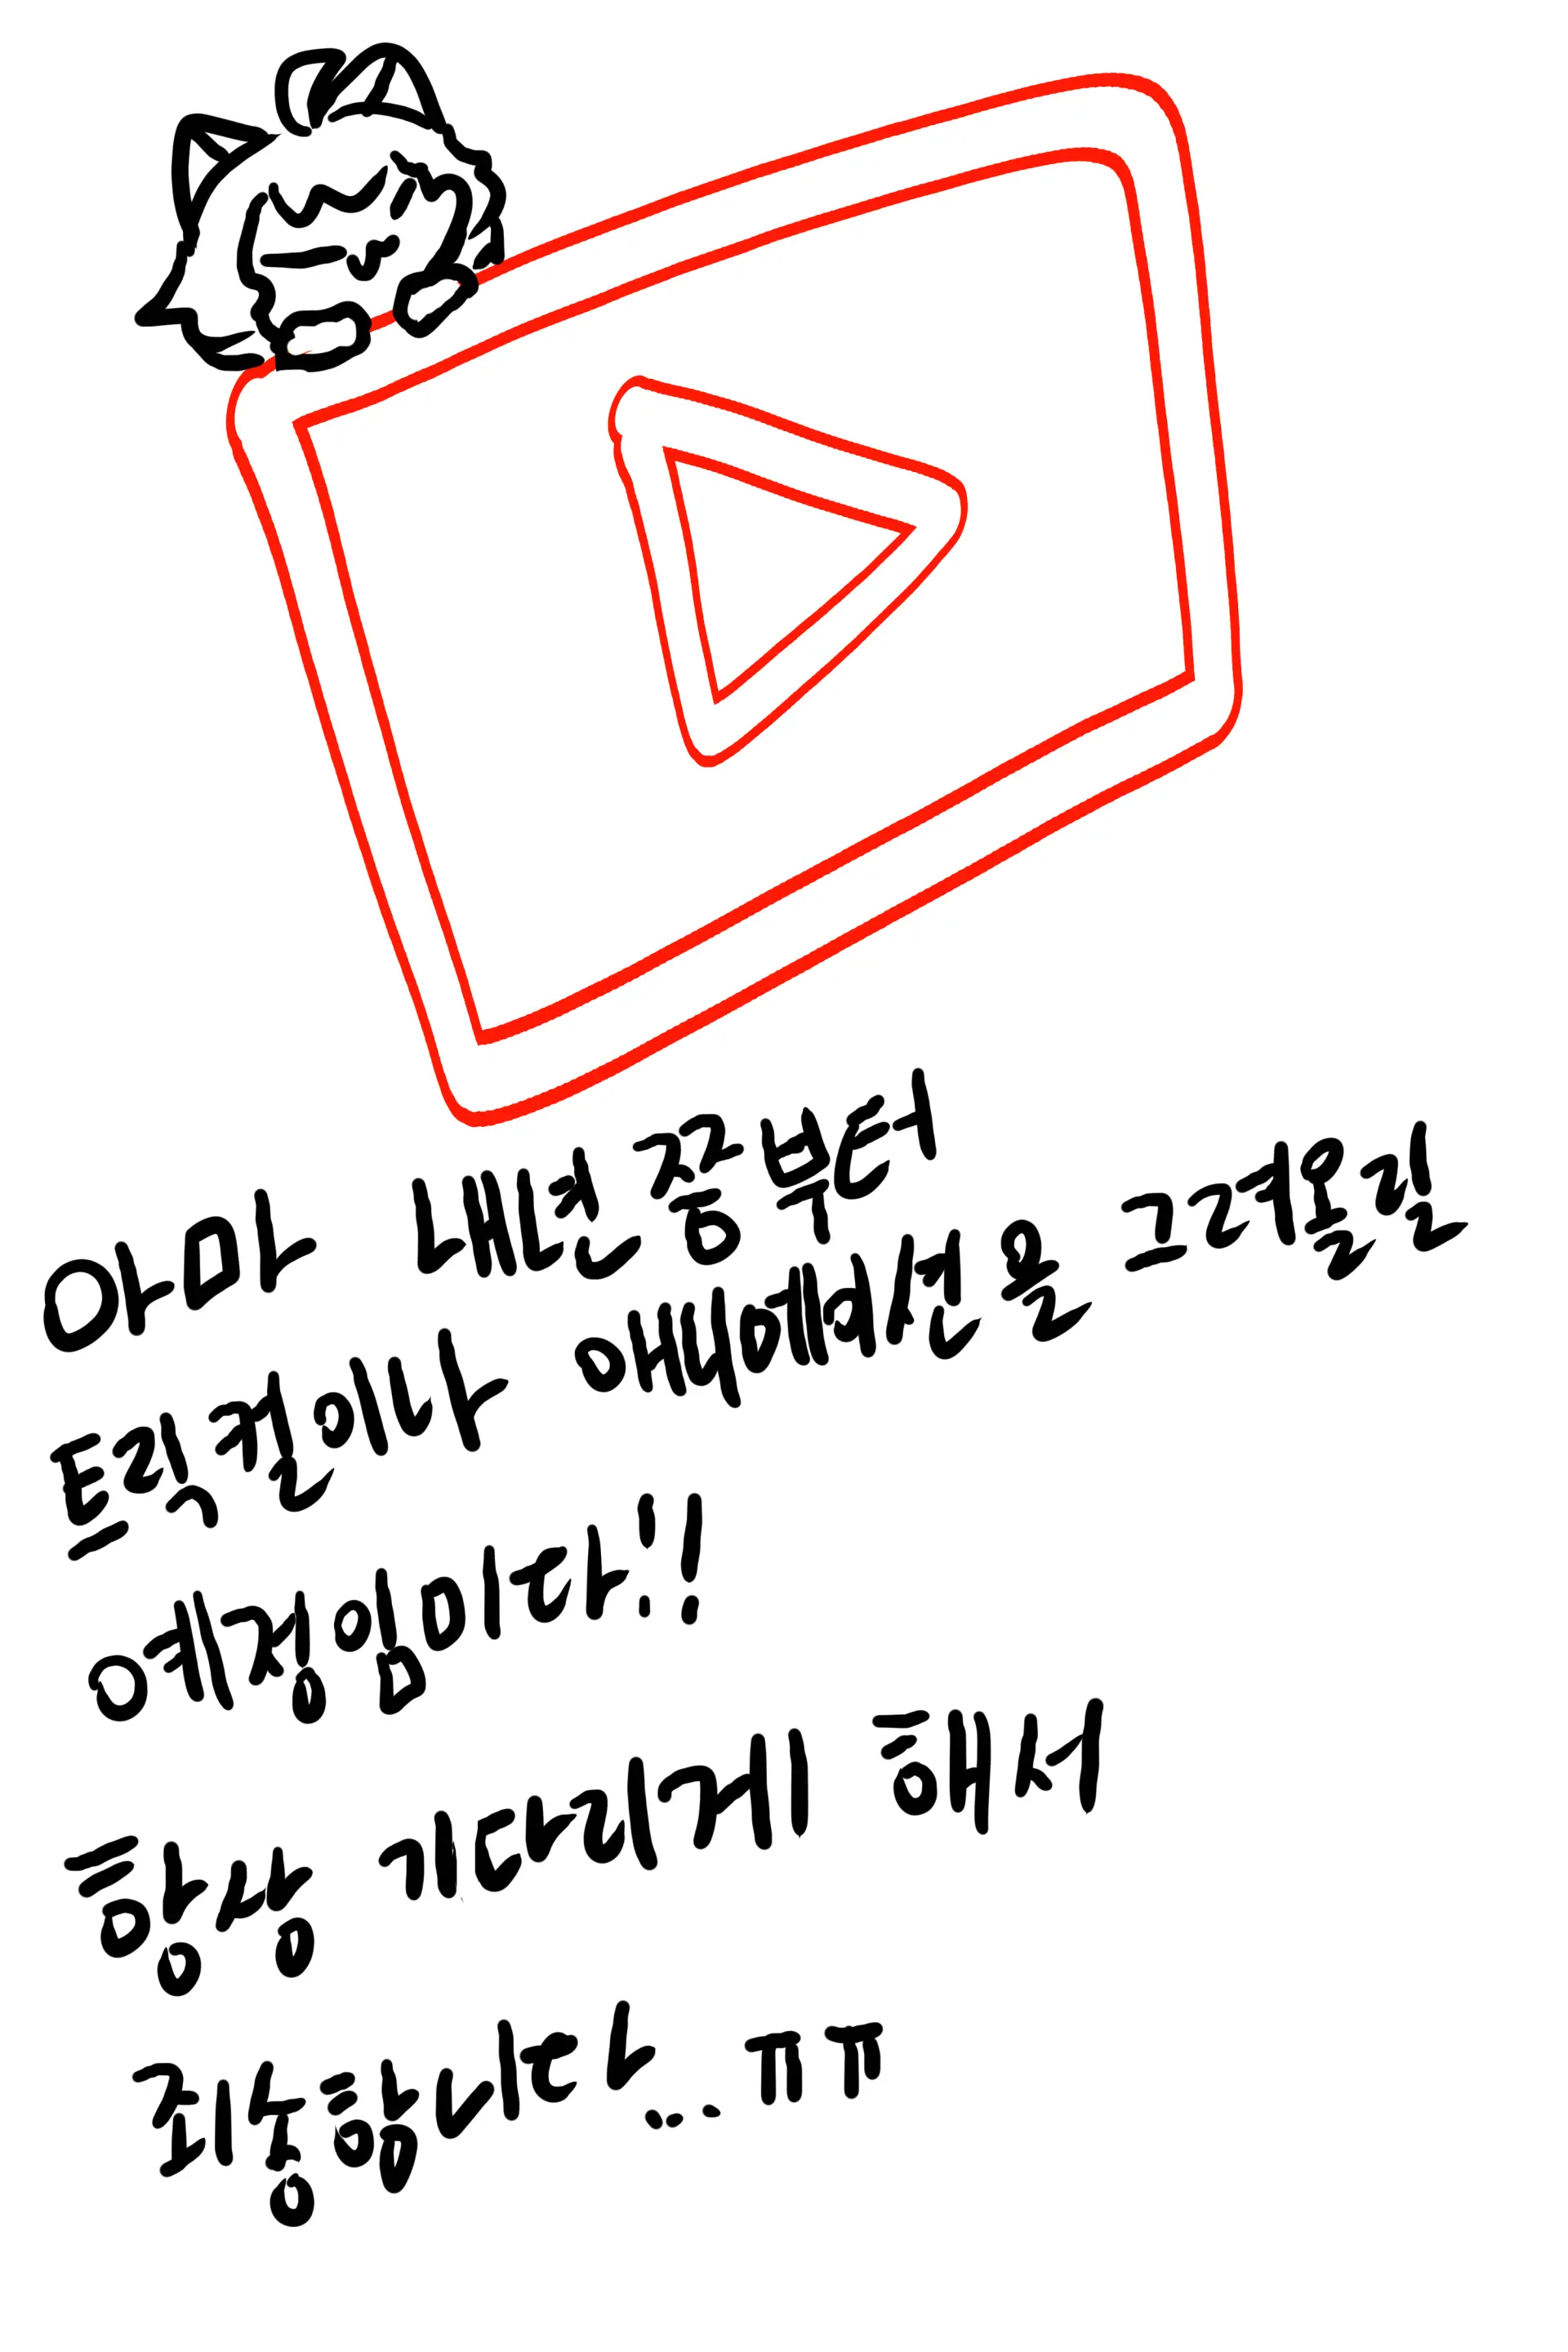 아마 내년 중부터
트릭컬이나 애니메이션을 그려올릴
예정입니다!!
항상 기다리게 해서
죄송합니다...ㅠㅠ